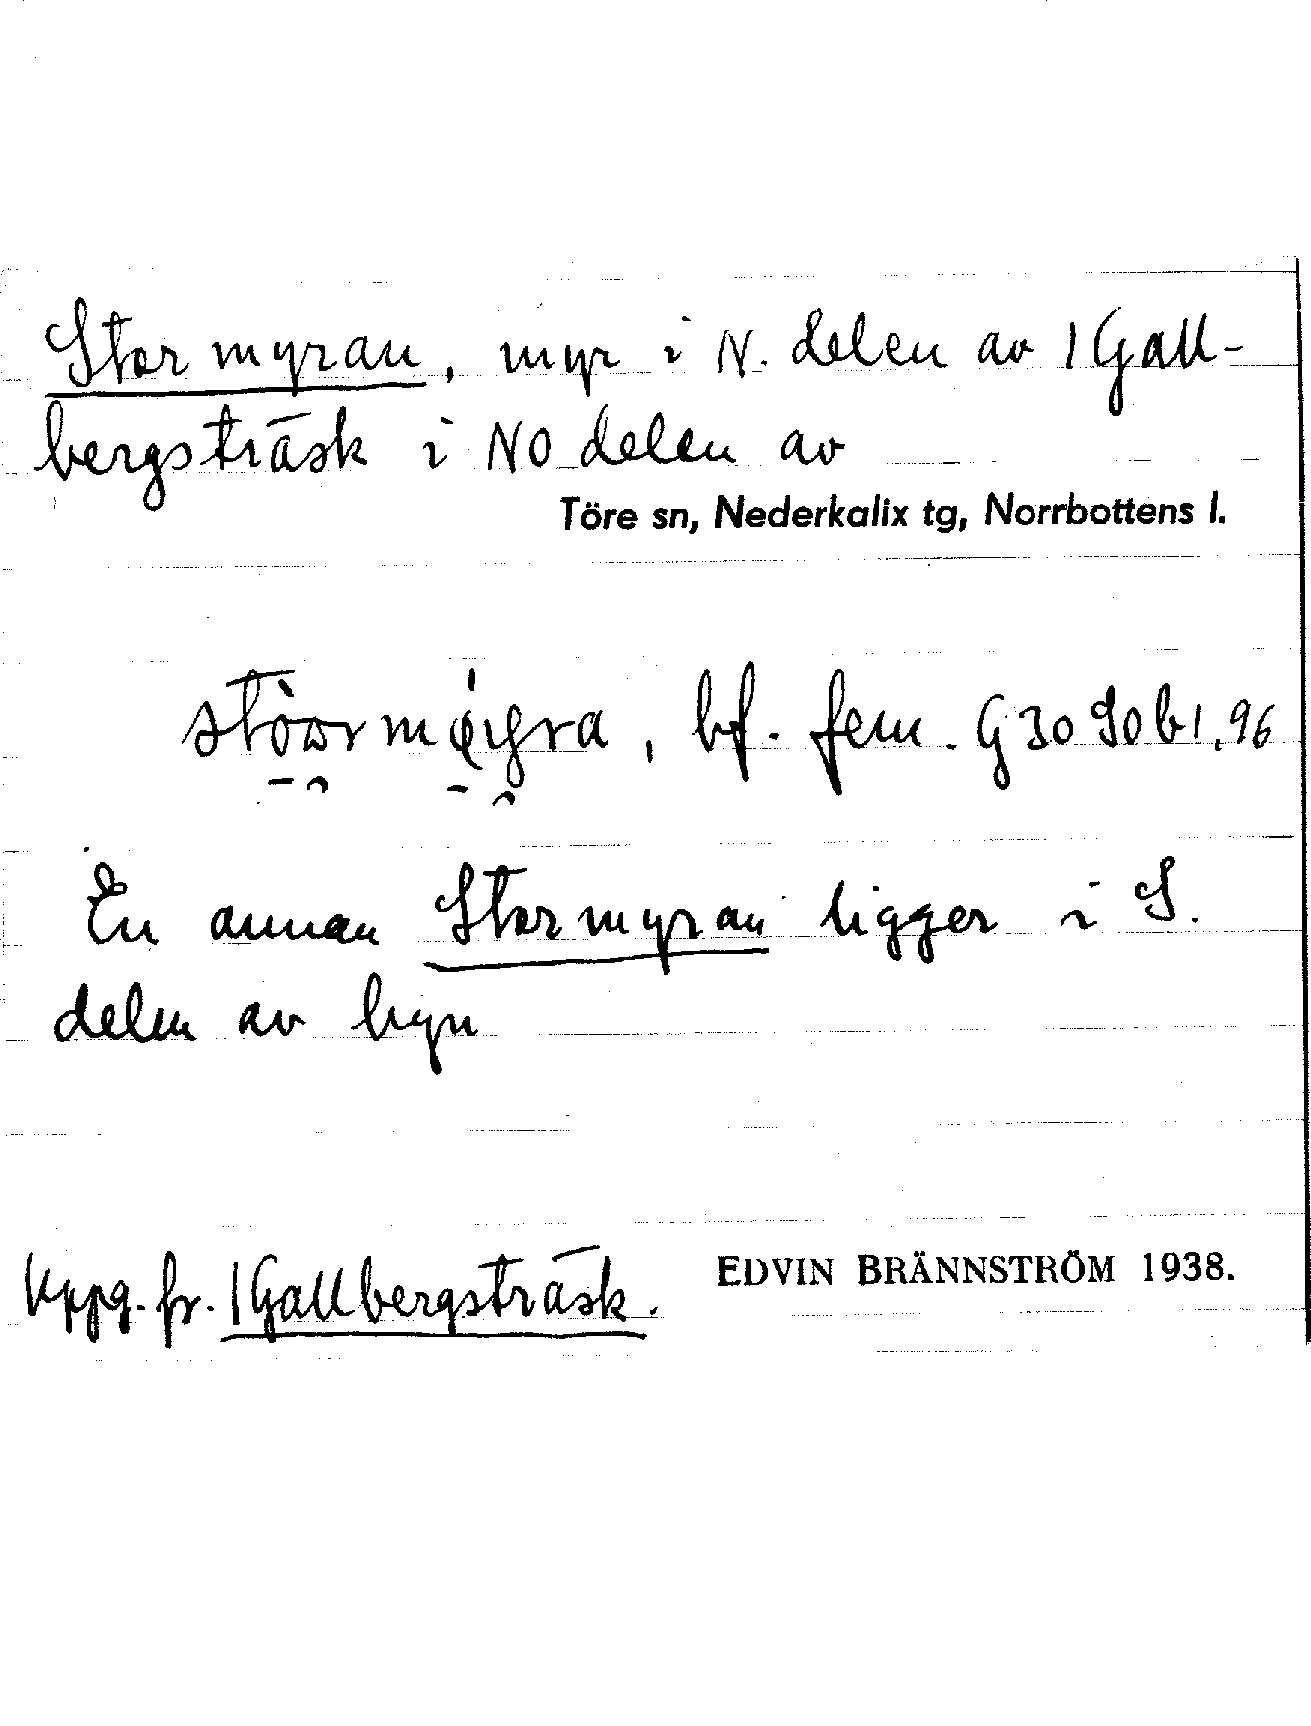 Stormyran, myr i N. delen av 1 Gall-
bergsträsk i NO delen av
Töre sn, Nederkalix tg, Norrbottens l.
bf. fem. G 30 90 b1, 96
En annan Stormyran ligger i S.
delen av byn
Uppg. fr. 1 Gallbergsträsk.
EDVIN BRÄNNSTRÖM 1938.